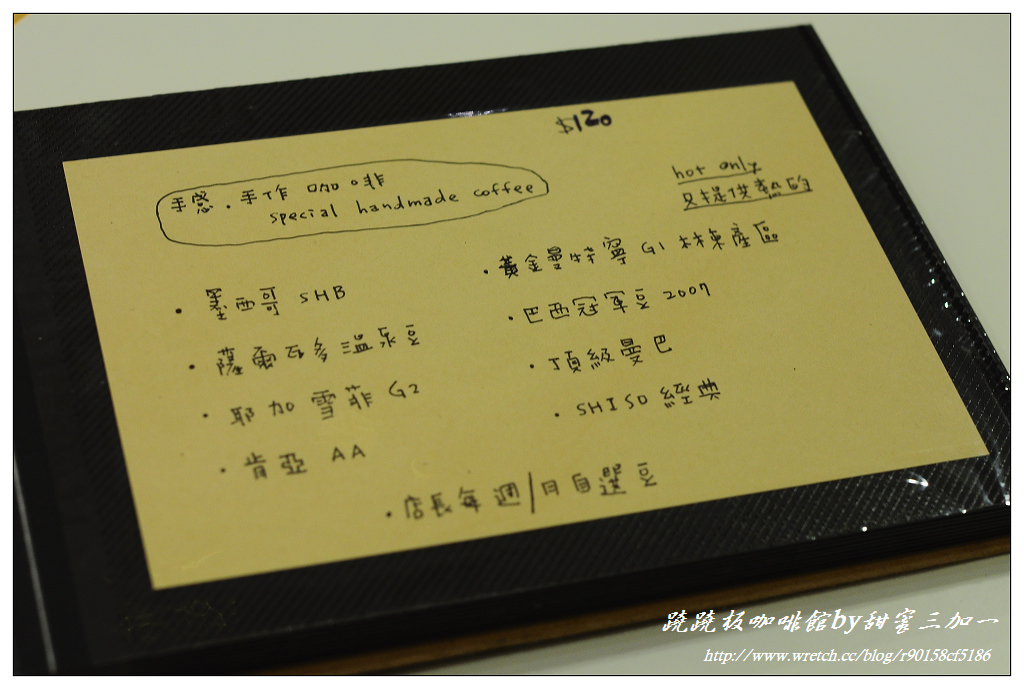 $120
手感.手作 咖啡
special handmade coffee
hot only
只提供熱的
• 墨西哥 SHB
• 薩爾瓦多溫泉豆
• 耶加雪菲 G2
• 肯亞 AA
• 黃金曼特寧 G1 林東產區
• 巴西冠軍豆 2007
• 頂級曼巴
• SHISO 經典
• 店長每週/月自選豆
蹺蹺板咖啡館by甜蜜三加一
http://www.wretch.cc/blog/r90158cf5186